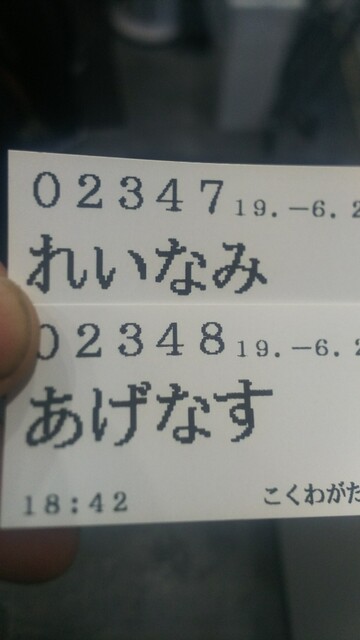 02347 19.-6.2
れいなみ
02348 19.-6.2
あげなす
18:42 こくわがた